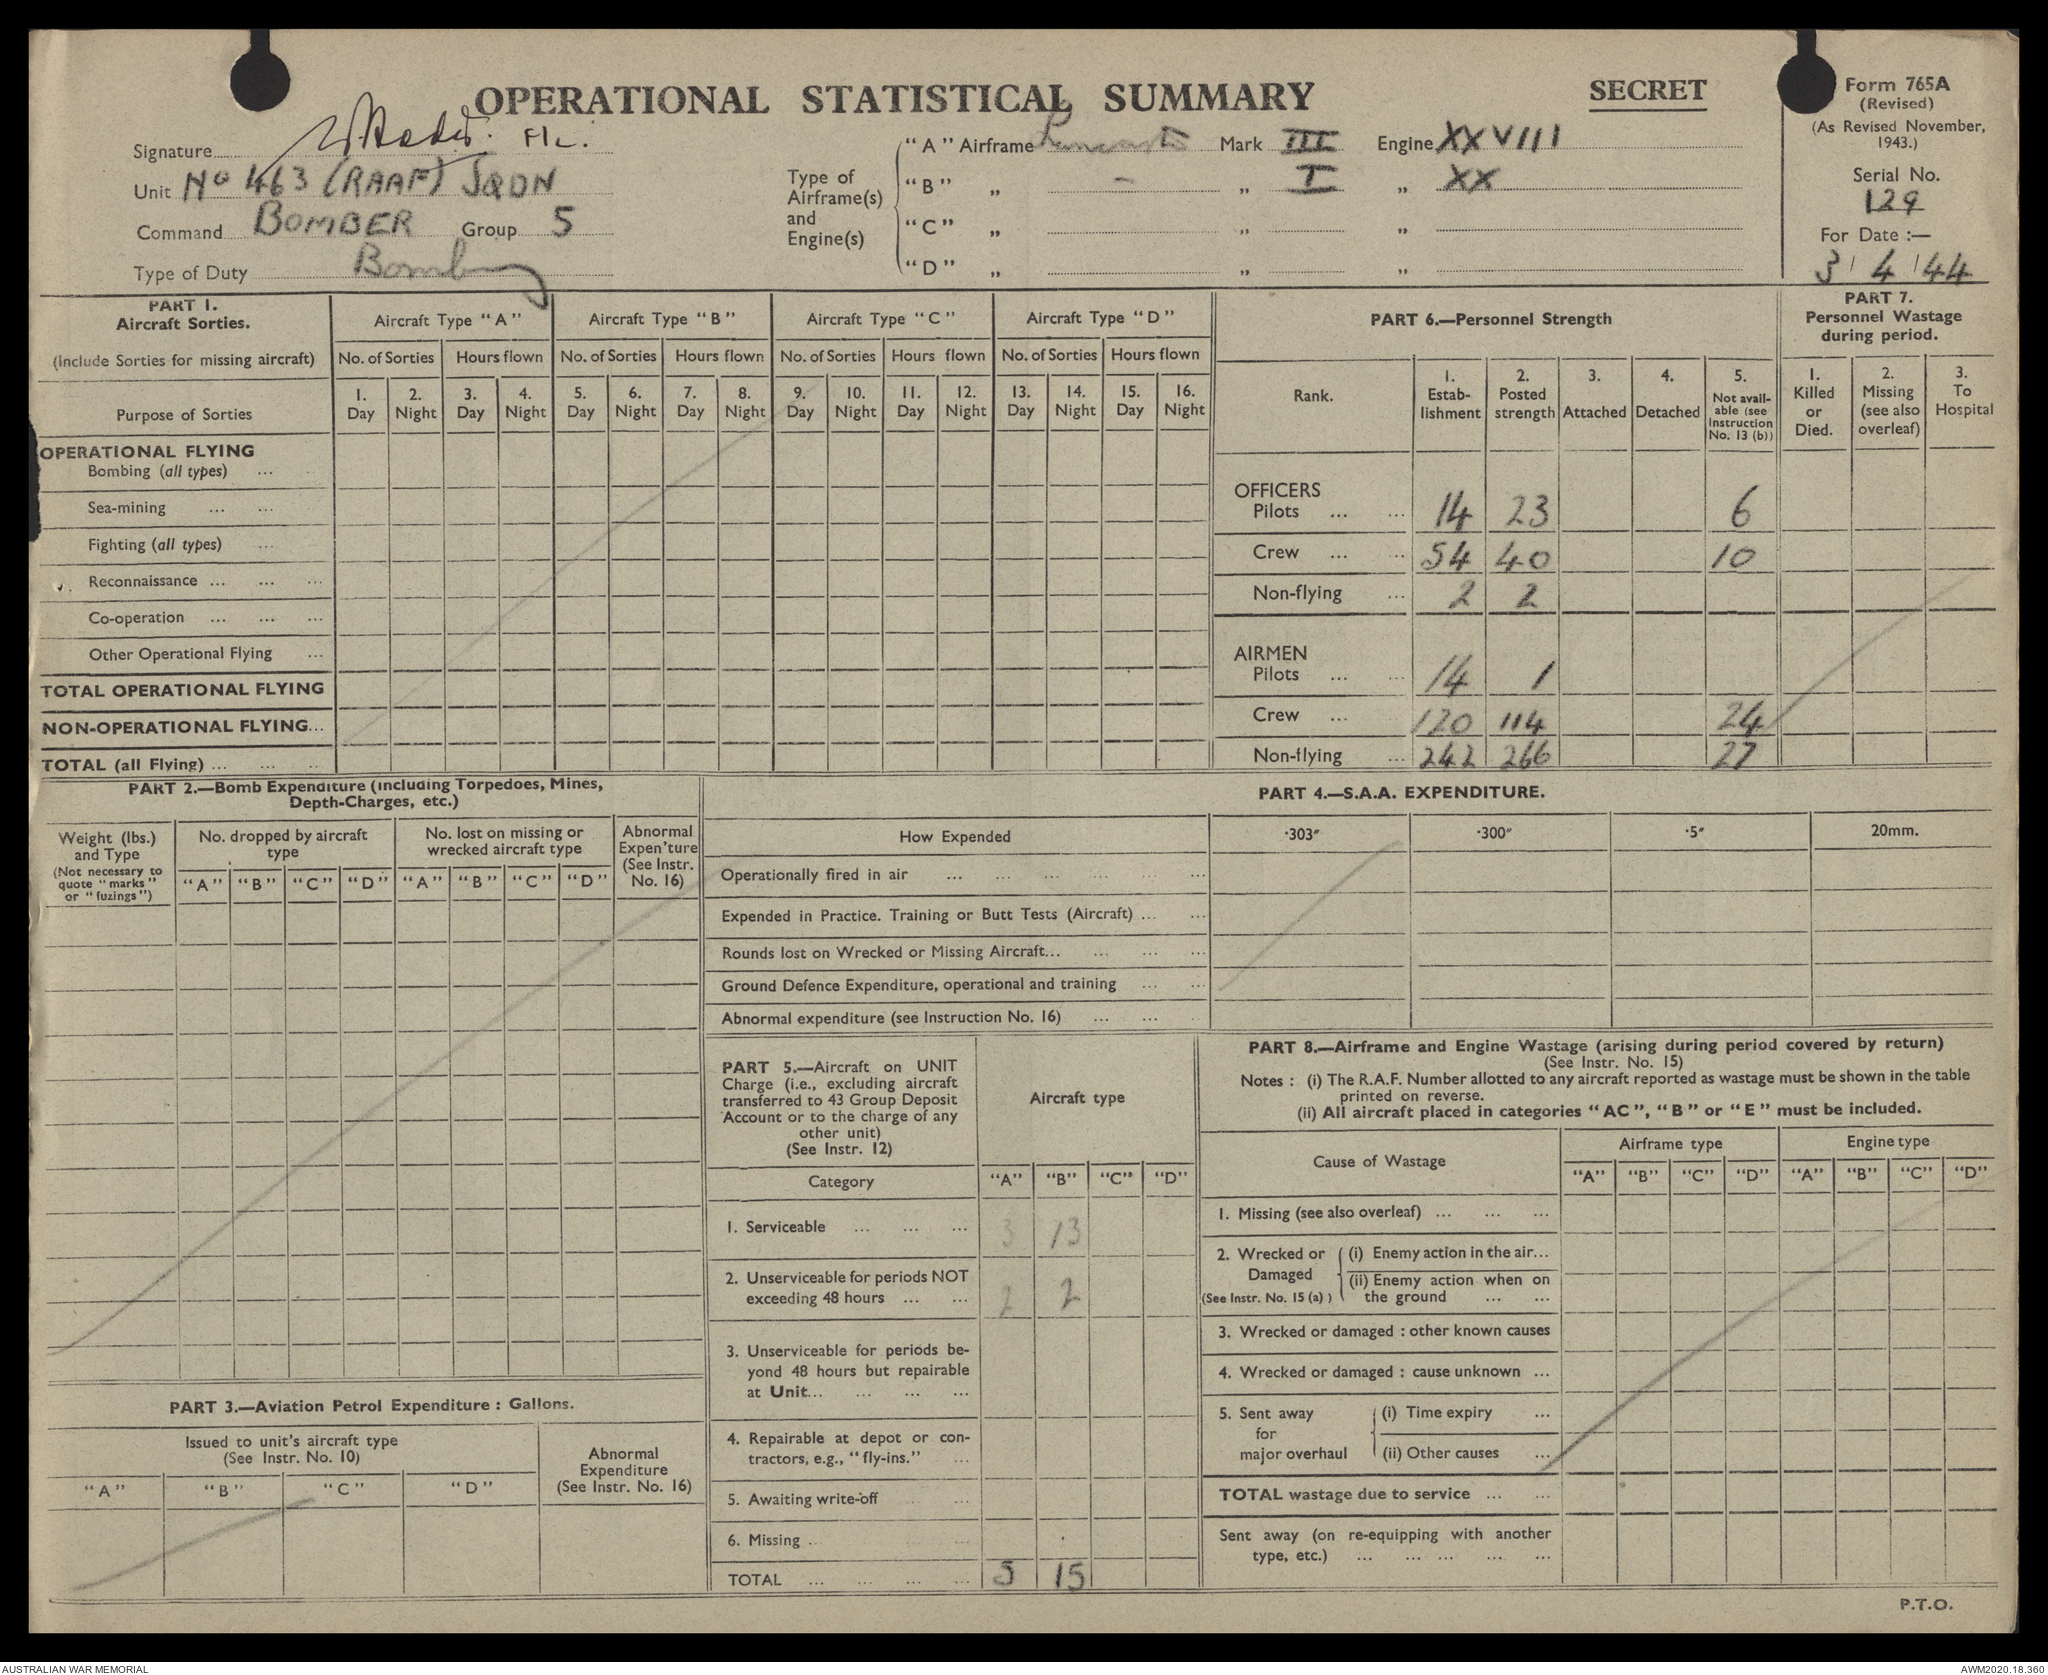 OPERATIONAL STATISTICAL SUMMARY
SECRET
Form 765A
(Revised)
(As Revised November,
1943.)
Serial No.
129
For Date :—
3 4 44
Signature
Unit No 463 (RAAF) SQDN
Command BOMBER Group 5
Type of Duty Bombing
Type of
Airframe(s)
and
Engine(s)
"A" Airframe Lancaster Mark III Engine XXVIII
"B" „ - „ I „ XX
"C" „ „ „
"D" „ „ „
PART 1.
Aircraft Sorties.
(Include Sorties for missing aircraft)
Purpose of Sorties
Aircraft Type "A" Aircraft Type "B" Aircraft Type "C" Aircraft Type "D"
No. of Sorties Hours flown No. of Sorties Hours flown No. of Sorties Hours flown No. of Sorties Hours flown
1. 2. 3. 4. 5. 6. 7. 8. 9. 10. 11. 12. 13. 14. 15. 16.
Day Night Day Night Day Night Day Night Day Night Day Night Day Night Day Night
OPERATIONAL FLYING
Bombing (all types) ...
Sea-mining ... ...
Fighting (all types) ...
Reconnaissance ... ... ...
Co-operation ... ... ...
Other Operational Flying ...
TOTAL OPERATIONAL FLYING
NON-OPERATIONAL FLYING...
TOTAL (all Flying) ... ... ...
PART 6.—Personnel Strength
Rank.
1. Estab-lishment
2. Posted strength
3. Attached
4. Detached
5. Not avail-able (see Instruction No. 13 (b))
OFFICERS
Pilots ... ... 14 23 6
Crew ... ... 54 40 10
Non-flying ... 2 2
AIRMEN
Pilots ... ... 14 1
Crew ... 120 114 24
Non-flying ... 242 266 27
PART 7.
Personnel Wastage
during period.
1. Killed or Died.
2. Missing (see also overleaf)
3. To Hospital
PART 2.—Bomb Expenditure (including Torpedoes, Mines,
Depth-Charges, etc.)
Weight (lbs.)
and Type
(Not necessary to
quote "marks"
or "fuzings")
No. dropped by aircraft
type
No. lost on missing or
wrecked aircraft type
Abnormal
Expen'ture
(See Instr.
No. 16)
"A" "B" "C" "D" "A" "B" "C" "D"
PART 4.—S.A.A. EXPENDITURE.
How Expended ·303″ ·300″ ·5″ 20mm.
Operationally fired in air ... ... ... ... ... ...
Expended in Practice. Training or Butt Tests (Aircraft) ... ...
Rounds lost on Wrecked or Missing Aircraft... ... ... ...
Ground Defence Expenditure, operational and training ... ...
Abnormal expenditure (see Instruction No. 16) ... ...
PART 3.—Aviation Petrol Expenditure : Gallons.
Issued to unit's aircraft type
(See Instr. No. 10)
Abnormal
Expenditure
(See Instr. No. 16)
"A" "B" "C" "D"
PART 5.—Aircraft on UNIT
Charge (i.e., excluding aircraft
transferred to 43 Group Deposit
Account or to the charge of any
other unit)
(See Instr. 12)
Aircraft type
Category "A" "B" "C" "D"
1. Serviceable ... ... ... 3 13
2. Unserviceable for periods NOT
exceeding 48 hours ... ... 2 2
3. Unserviceable for periods be-
yond 48 hours but repairable
at Unit... ... ... ...
4. Repairable at depot or con-
tractors, e.g., "fly-ins." ...
5. Awaiting write-off ... ...
6. Missing ... ... ...
TOTAL ... ... ... ... 5 15
PART 8.—Airframe and Engine Wastage (arising during period covered by return)
(See Instr. No. 15)
Notes : (i) The R.A.F. Number allotted to any aircraft reported as wastage must be shown in the table
printed on reverse.
(ii) All aircraft placed in categories "AC", "B" or "E" must be included.
Cause of Wastage
Airframe type Engine type
"A" "B" "C" "D" "A" "B" "C" "D"
1. Missing (see also overleaf) ... ... ...
2. Wrecked or
Damaged
(See Instr. No. 15 (a) )
(i) Enemy action in the air...
(ii) Enemy action when on
the ground ... ...
3. Wrecked or damaged : other known causes
4. Wrecked or damaged : cause unknown ...
5. Sent away
for
major overhaul
(i) Time expiry ...
(ii) Other causes ...
TOTAL wastage due to service ... ...
Sent away (on re-equipping with another
type, etc.) ... ... ... ... ...
P.T.O.
AUSTRALIAN WAR MEMORIAL
AWM2020.18.360